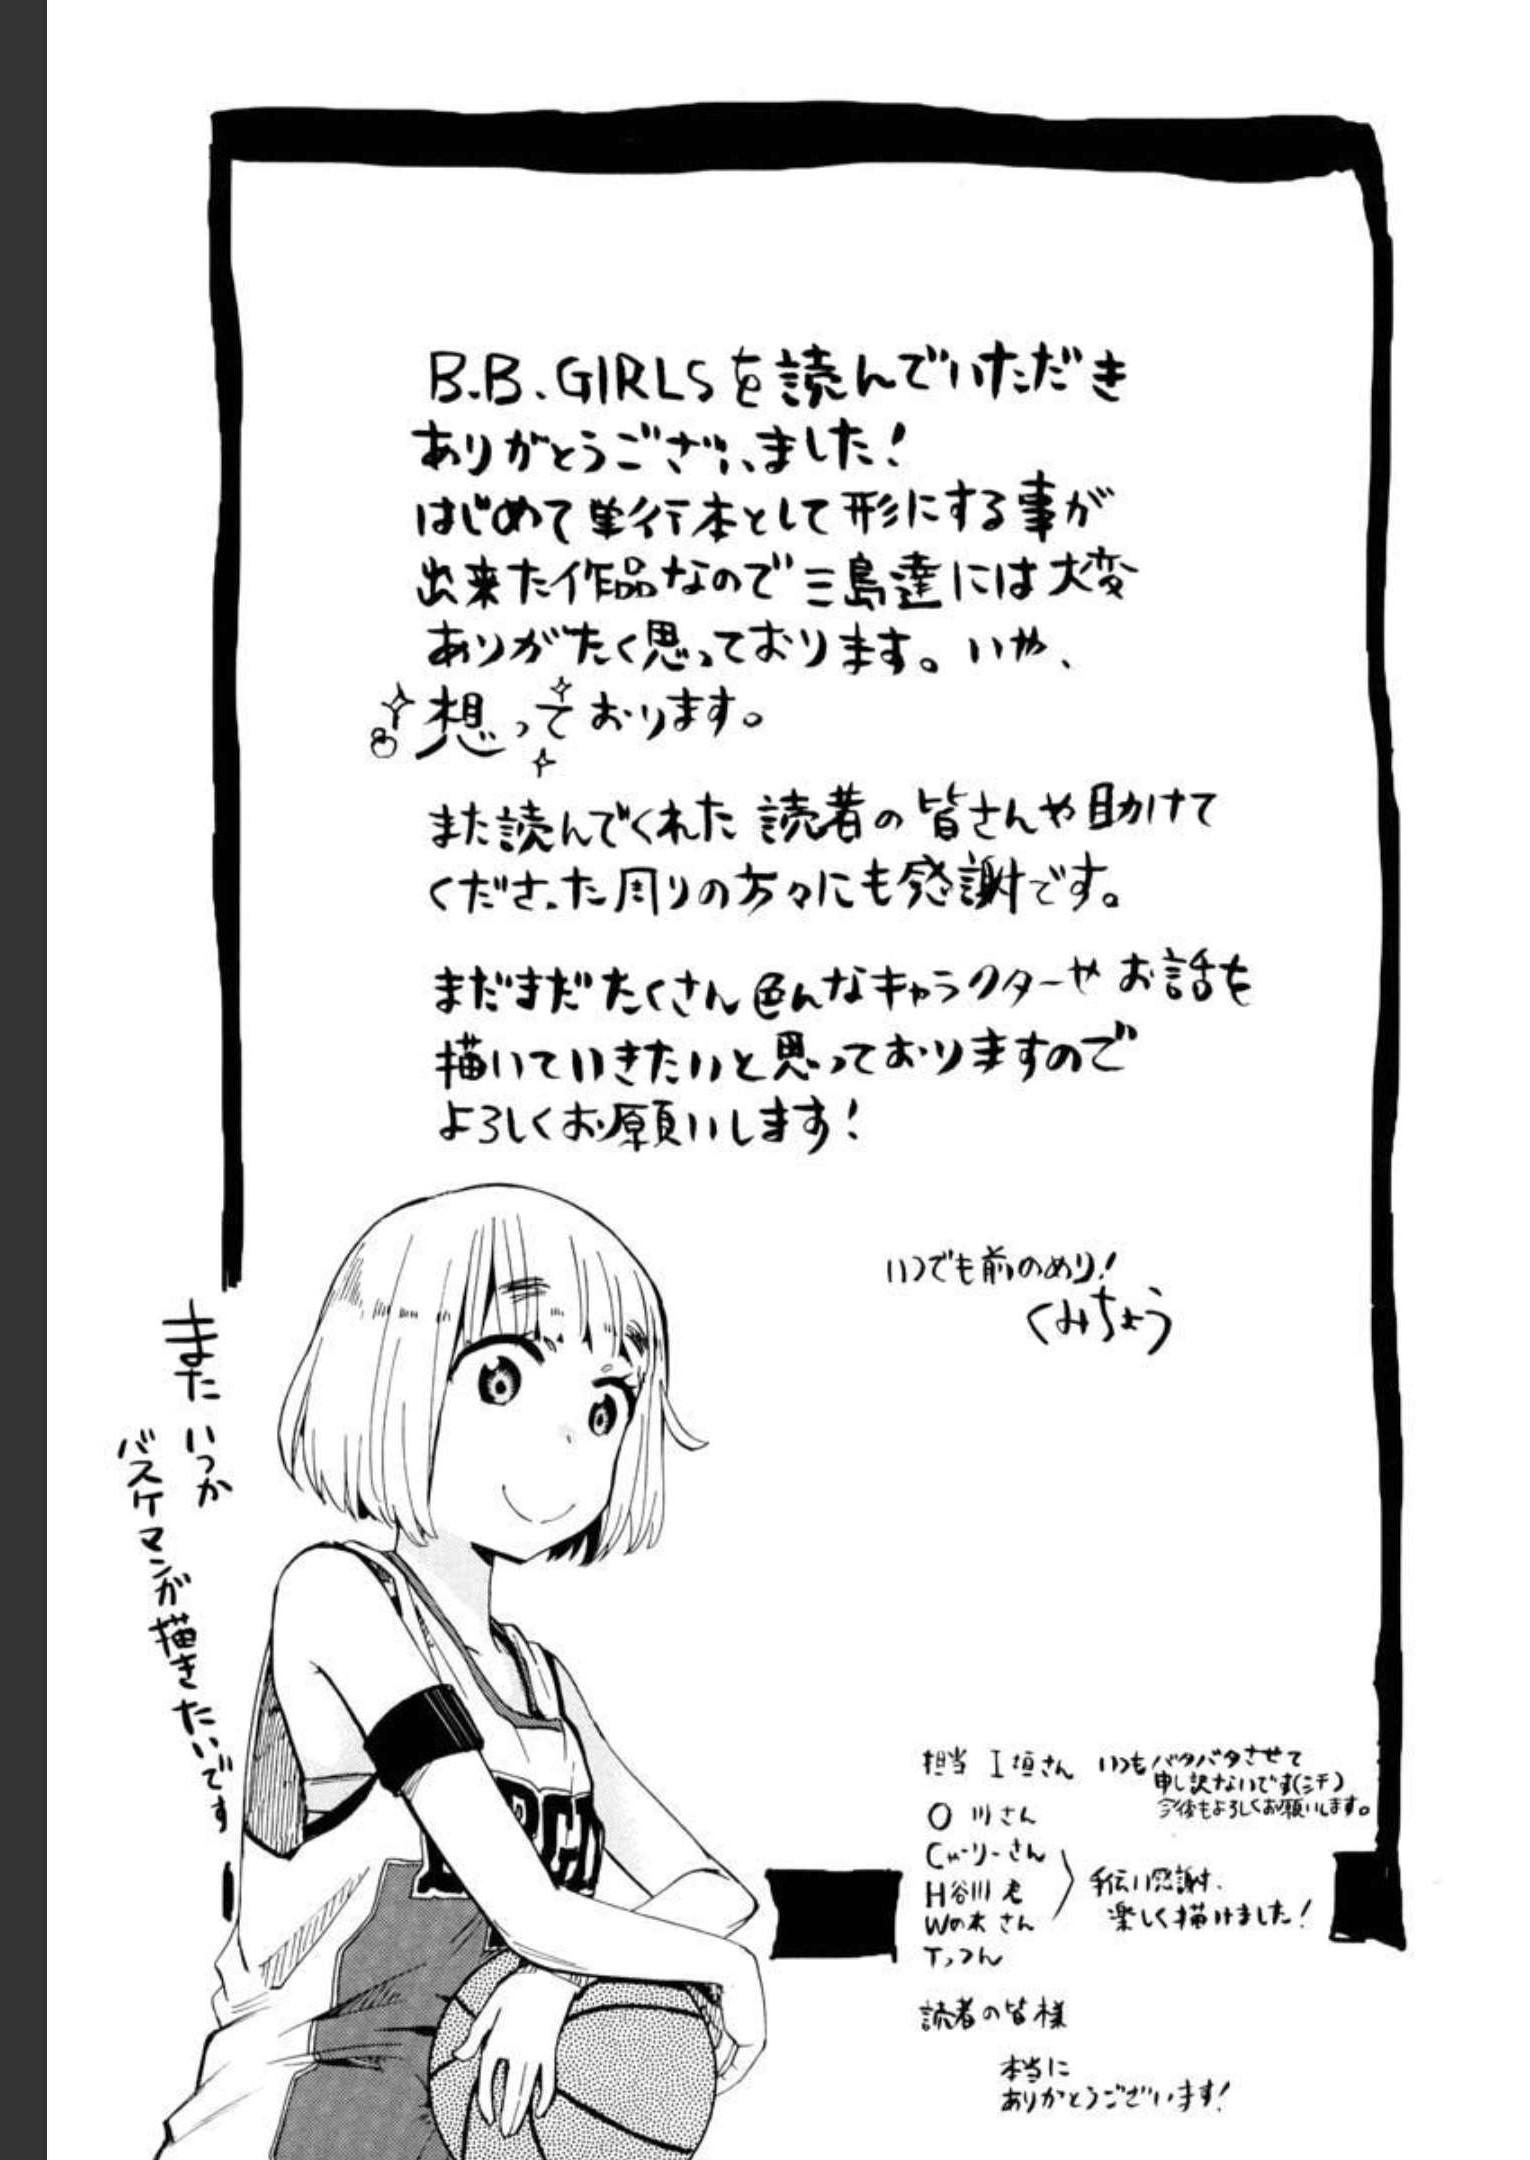 B.B.GIRLSを読んでいただき
ありがとうございました!
はじめて単行本として形にする事が
出来た作品なので三島達には大変
ありがたく思っております。いや、
想っております。
また読んでくれた読者の皆さんや助けて
くださった周りの方々にも感謝です。
まだまだたくさん色んなキャラクターやお話を
描いていきたいと思っておりますので
よろしくお願いします!
いつでも前のめり!
くみちょう
またいつか
バスケマンが描きたいです
担当 I垣さん いつもバタバタさせて
申し訳ないです(ニチ)
今後もよろしくお願いします。
O川さん
Cャーリーさん
H谷川君
Wの木さん
Tっつん
手伝い感謝、
楽しく描けました!
読者の皆様
本当に
ありがとうございます!